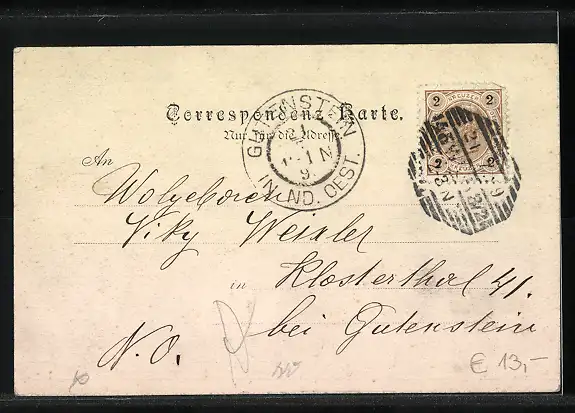 Correspondenz-Karte.
Nur für die Adresse.
GUTENSTEIN
IN ND. OEST.
KREUZER
2 2
2 2
An
Wolgeboren
Viky Weixler
in Klosterthal 41.
bei Gutenstein
N. O.
€ 13,-